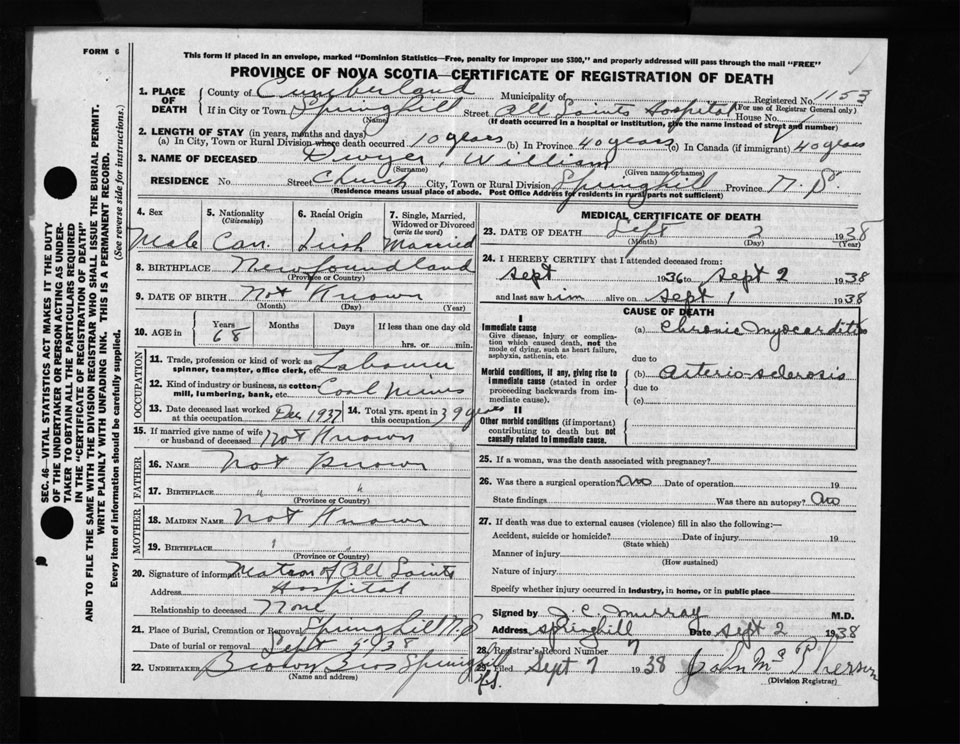 FORM 6
This form if placed in an envelope, marked "Dominion Statistics—Free, penalty for improper use $300," and properly addressed will pass through the mail "FREE"
PROVINCE OF NOVA SCOTIA—CERTIFICATE OF REGISTRATION OF DEATH
1. PLACE OF DEATH County of Cumberland Municipality of Registered No. 1153
(For use of Registrar General only)
If in City or Town Springhill Street All Saints Hospital House No.
(Name) (If death occurred in a hospital or institution, give the name instead of street and number)
2. LENGTH OF STAY (in years, months and days)
(a) In City, Town or Rural Division where death occurred 10 years (b) In Province 40 years (c) In Canada (if immigrant) 40 years
3. NAME OF DECEASED Dwyer, William
(Surname) (Given name or names)
RESIDENCE No Street Church City, Town or Rural Division Springhill Province N. S.
(Residence means usual place of abode. Post Office Address for residents in rural parts not sufficient)
4. Sex Male
5. Nationality (Citizenship) Can.
6. Racial Origin Irish
7. Single, Married, Widowed or Divorced (write the word) Married
8. BIRTHPLACE Newfoundland
(Province or Country)
9. DATE OF BIRTH Not Known
(Month) (Day) (Year)
10. AGE in Years 68 Months Days If less than one day old
hrs. or min.
OCCUPATION
11. Trade, profession or kind of work as spinner, teamster, office clerk, etc. Labourer
12. Kind of industry or business, as cotton-mill, lumbering, bank, etc. Coal Mines
13. Date deceased last worked at this occupation Dec 1937
14. Total yrs. spent in this occupation 39 years
15. If married give name of wife or husband of deceased Not Known
FATHER
16. NAME Not Known
17. BIRTHPLACE " "
(Province or Country)
MOTHER
18. MAIDEN NAME Not Known
19. BIRTHPLACE
(Province or Country)
20. Signature of informant Matron of All Saints
Address Hospital
Relationship to deceased None
21. Place of Burial, Cremation or Removal Springhill N.S
Date of burial or removal Sept 5 - 38
22. UNDERTAKER Brown Bros Springhill
(Name and address) N.S.
MEDICAL CERTIFICATE OF DEATH
23. DATE OF DEATH Sept 2 1938
(Month) (Day) (Year)
24. I HEREBY CERTIFY that I attended deceased from:
Sept 1936 to Sept 2 1938
and last saw him alive on Sept 1 1938
CAUSE OF DEATH
I
Immediate cause (a) Chronic Myocarditis
Give disease, injury or complication which caused death, not the mode of dying, such as heart failure, asphyxia, asthenia, etc.
due to
Morbid conditions, if any, giving rise to immediate cause (stated in order proceeding backwards from immediate cause). (b) Arterio-sclerosis
due to
(c)
II
Other morbid conditions (if important) contributing to death but not causally related to immediate cause.
25. If a woman, was the death associated with pregnancy?
26. Was there a surgical operation? No Date of operation 19
State findings Was there an autopsy? No
27. If death was due to external causes (violence) fill in also the following:—
Accident, suicide or homicide? Date of injury 19
(State which)
Manner of injury
(How sustained)
Nature of injury
Specify whether injury occurred in industry, in home, or in public place
Signed by J. C. Murray M.D.
Address Springhill Date Sept 2 1938
28. Registrar's Record Number 7
29. Filed Sept 7 1938 John McPherson
(Division Registrar)
SEC. 46—VITAL STATISTICS ACT MAKES IT THE DUTY
OF THE UNDERTAKER OR PERSON ACTING AS UNDERTAKER TO OBTAIN ALL THE PARTICULARS REQUIRED
IN THE "CERTIFICATE OF REGISTRATION OF DEATH"
AND TO FILE THE SAME WITH THE DIVISION REGISTRAR WHO SHALL ISSUE THE BURIAL PERMIT.
WRITE PLAINLY WITH UNFADING INK. THIS IS A PERMANENT RECORD.
Every item of information should be carefully supplied. (See reverse side for instructions.)